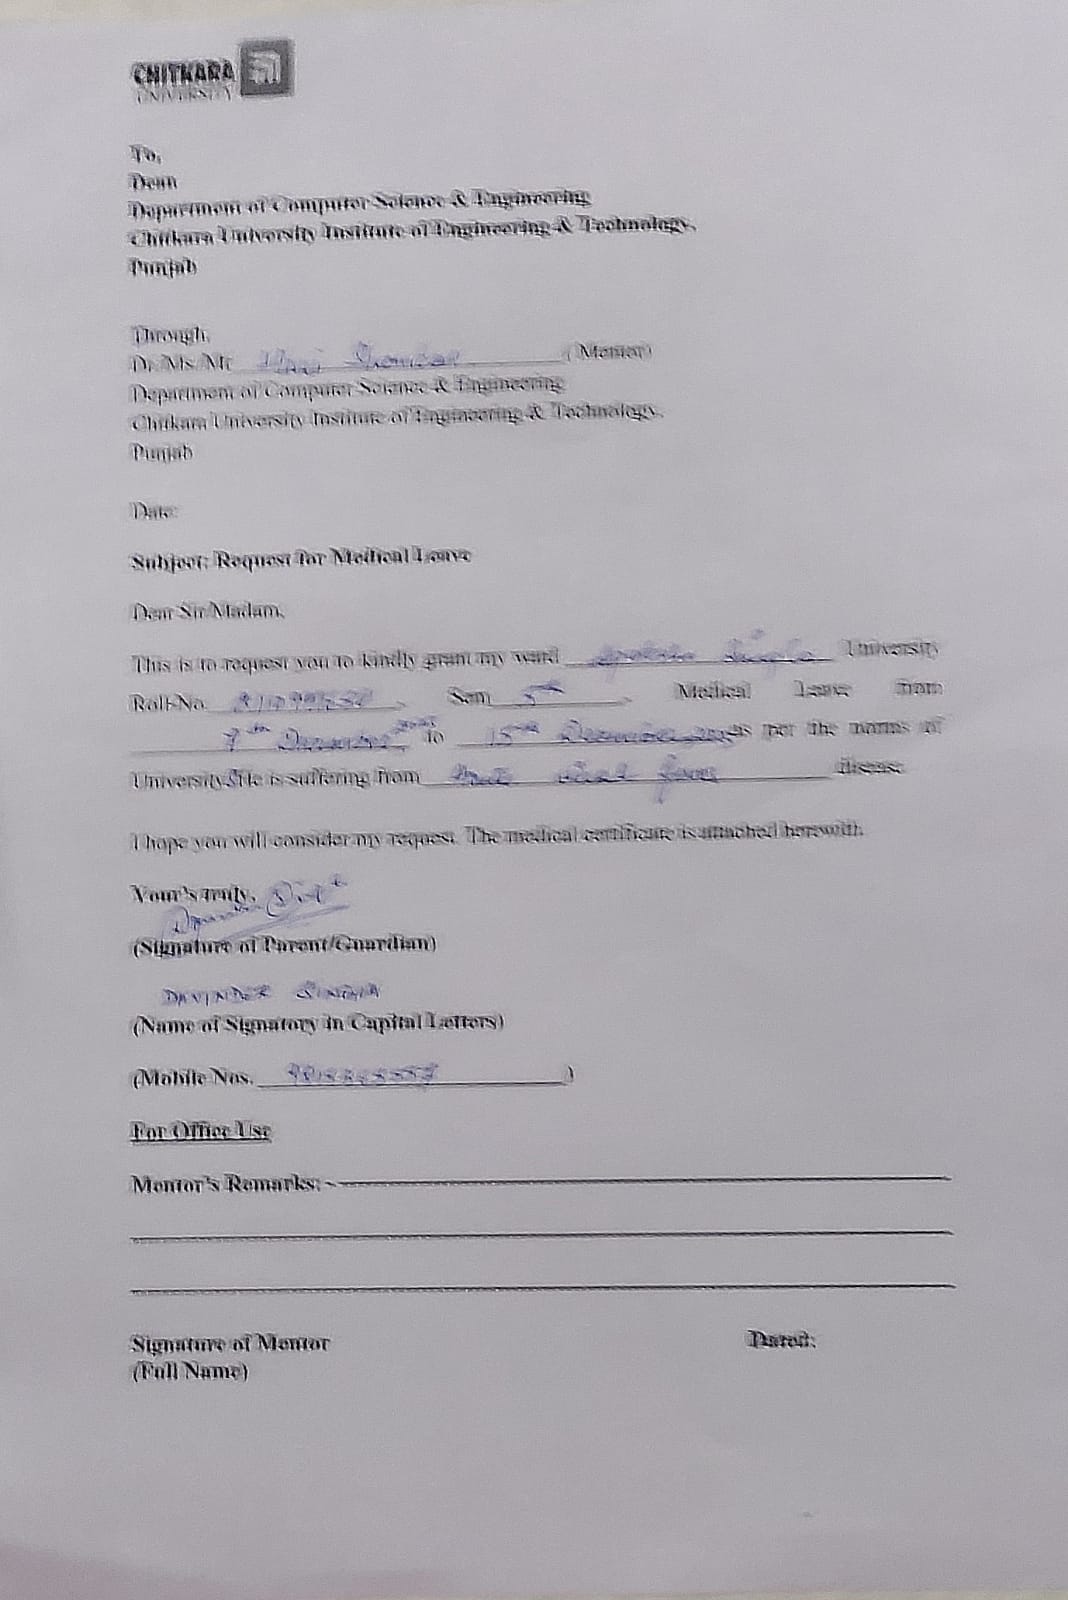 CHITKARA
UNIVERSITY
To,
Dean
Department of Computer Science & Engineering
Chitkara University Institute of Engineering & Technology,
Punjab
Through,
Dr/Ms/Mr (Mentor)
Department of Computer Science & Engineering
Chitkara University Institute of Engineering & Technology,
Punjab
Date:
Subject: Request for Medical Leave
Dear Sir/Madam,
This is to request you to kindly grant my ward University
Roll-No. Sem 5th Medical Leave from
December to 15th December as per the norms of
University. He is suffering from viral fever disease
I hope you will consider my request. The medical certificate is attached herewith.
Your's truly,
(Signature of Parent/Guardian)
DAVINDER SINGLA
(Name of Signatory in Capital Letters)
(Mobile Nos. )
For Office Use
Mentor's Remarks: -
Signature of Mentor Dated:
(Full Name)